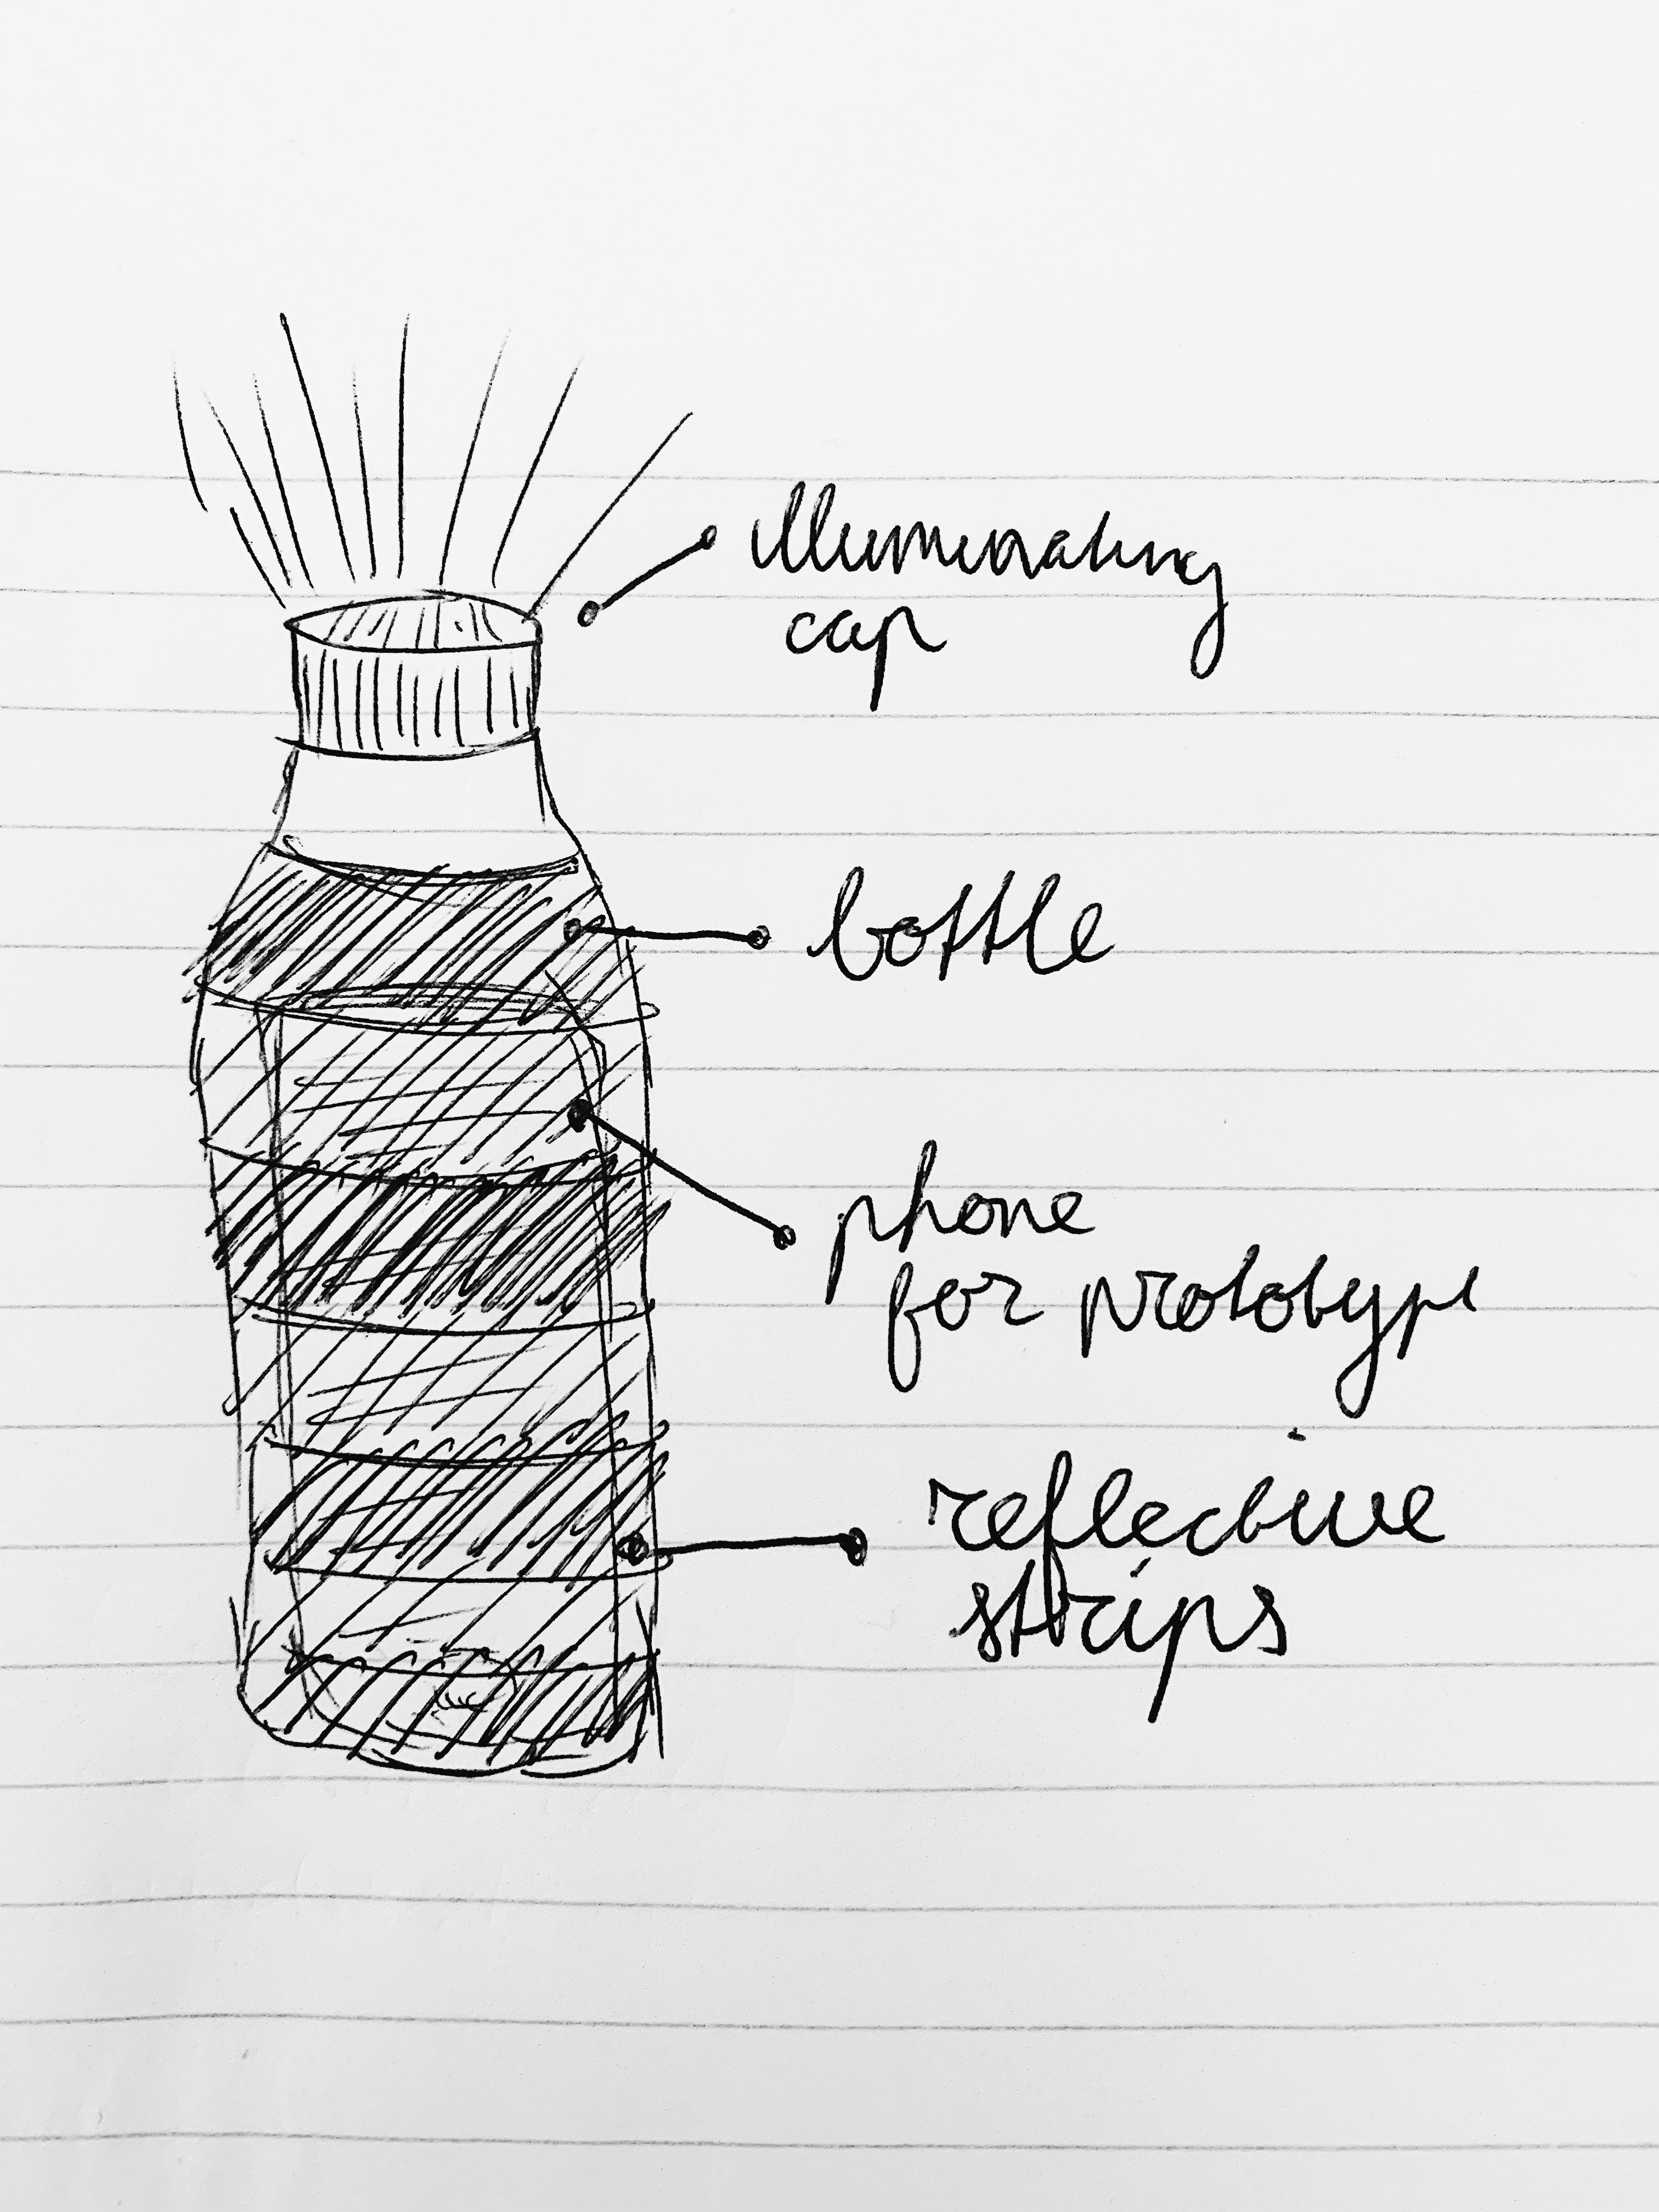 illuminating
cap
bottle
phone
for prototype
reflective
strips